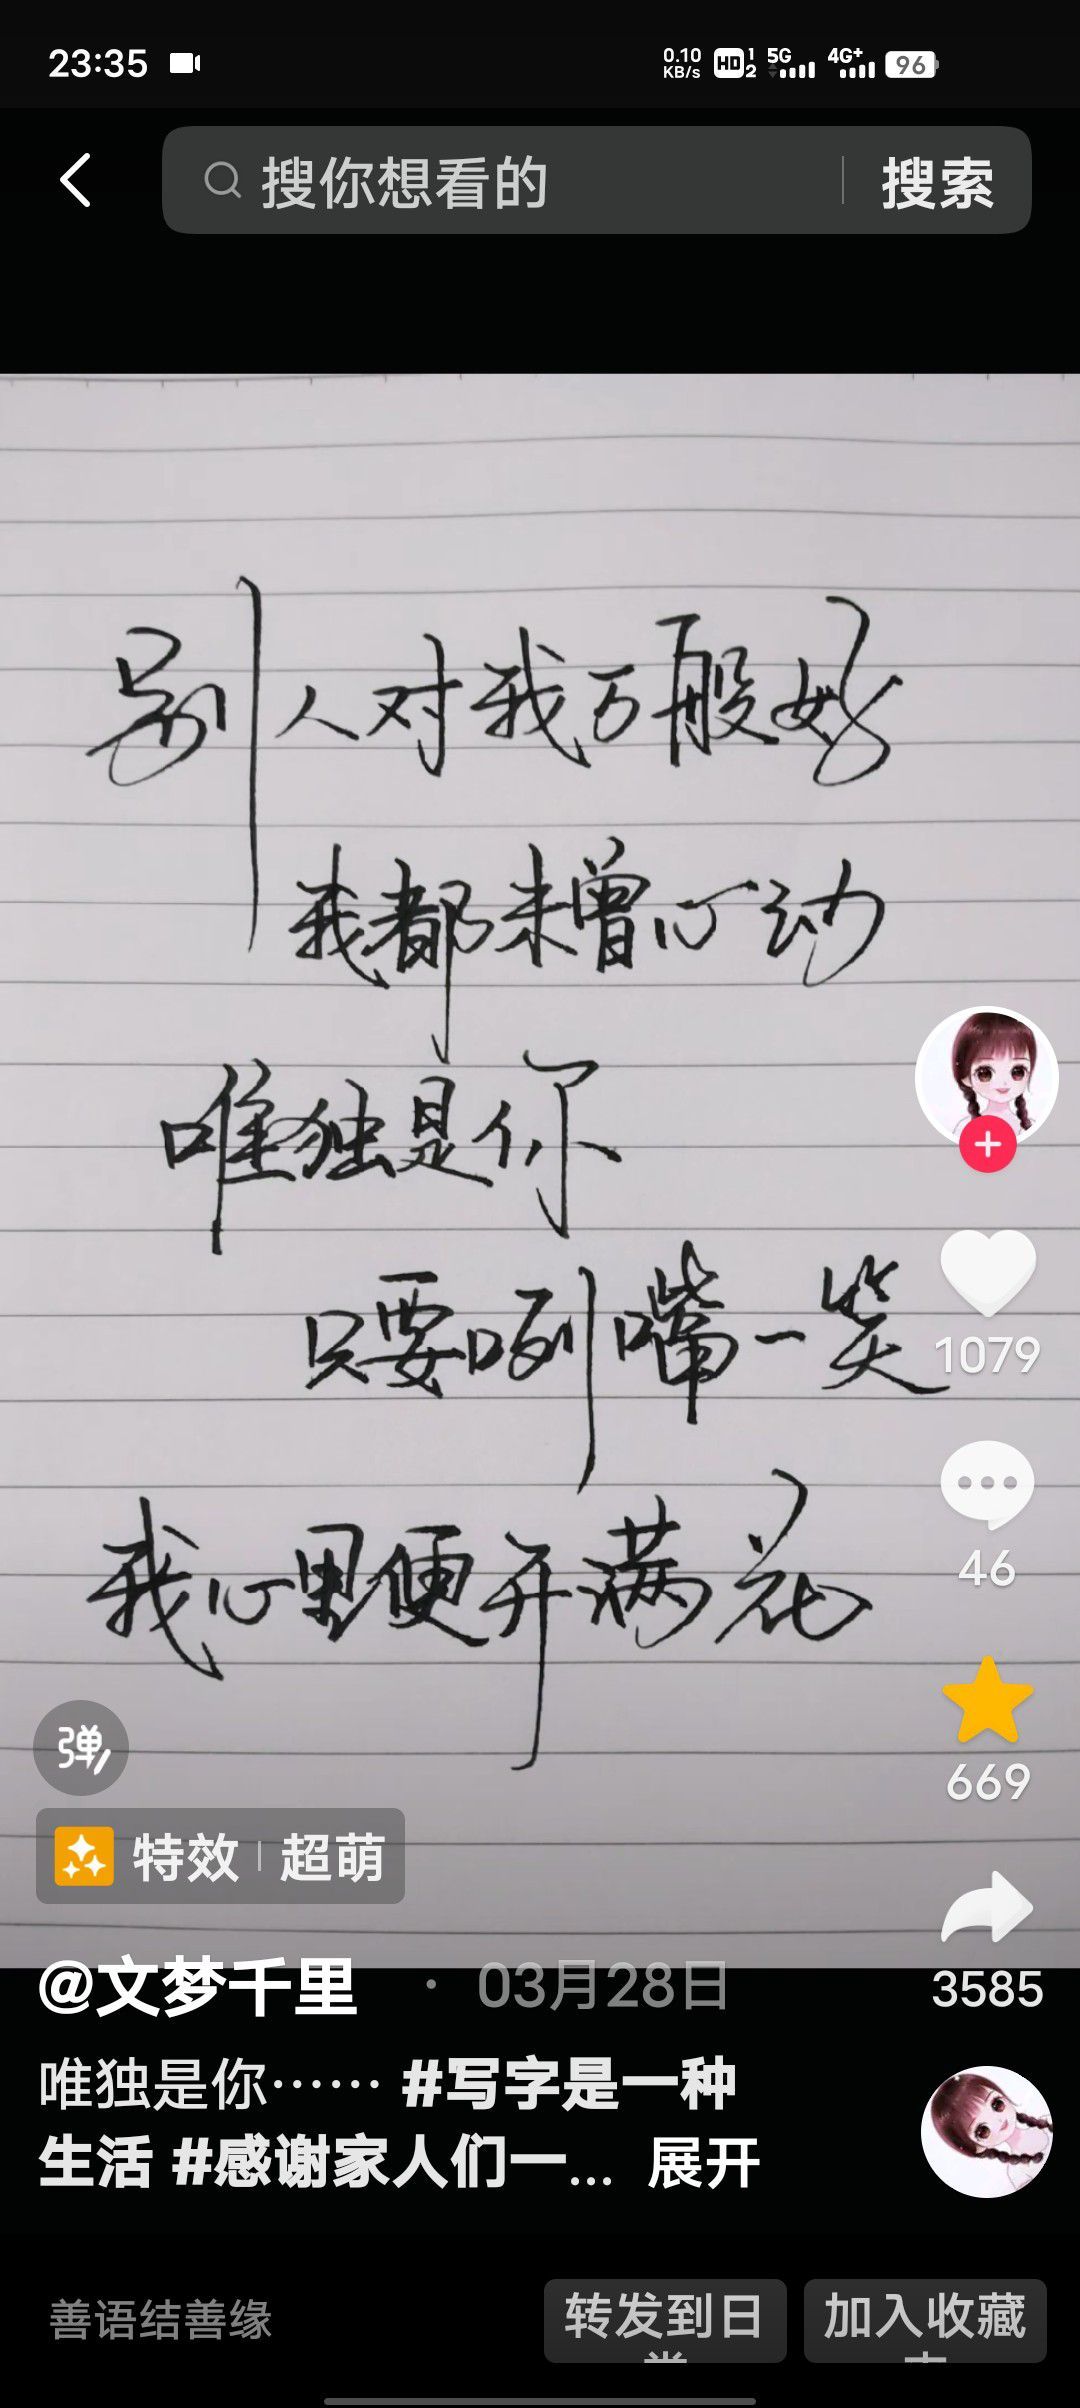 23:35
0.10 KB/s HD 1 2 5G 4G+ 96
搜你想看的 搜索
别人对我万般好
我都未曾心动
唯独是你
只要咧嘴一笑
我心里便开满花
1079
46
669
3585
弹
特效 超萌
@文梦千里 · 03月28日
唯独是你⋯⋯ #写字是一种
生活 #感谢家人们一... 展开
善语结善缘
转发到日
加入收藏